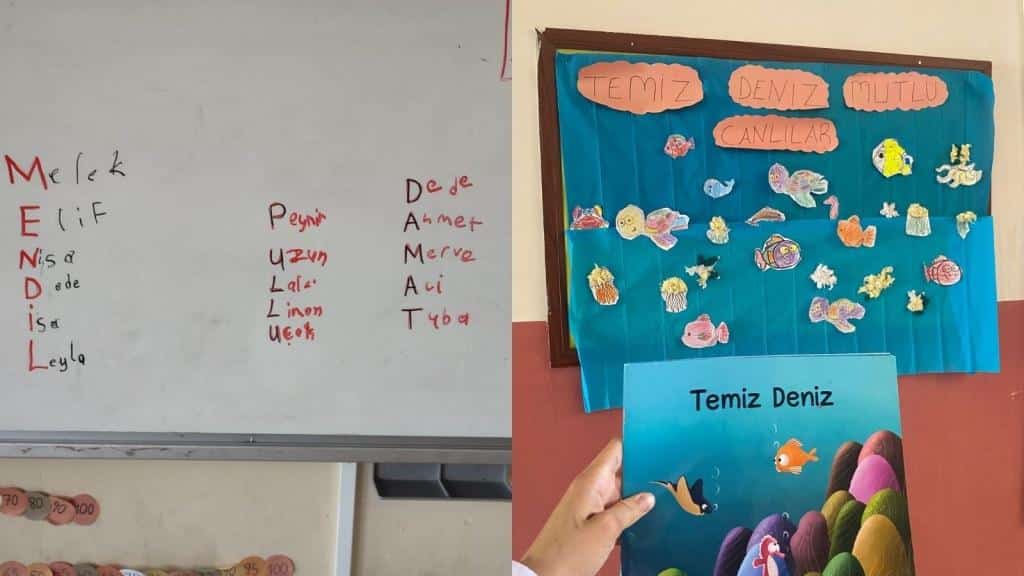 Melek
Elif
Nisa
Dede
isa
Leyla
Peynir
Uzun
Lale
Limon
Uçak
Dede
Ahmet
Merve
Ali
Tuba
70 80 90 100
95 100
TEMİZ DENİZ MUTLU
CANLILAR
Temiz Deniz